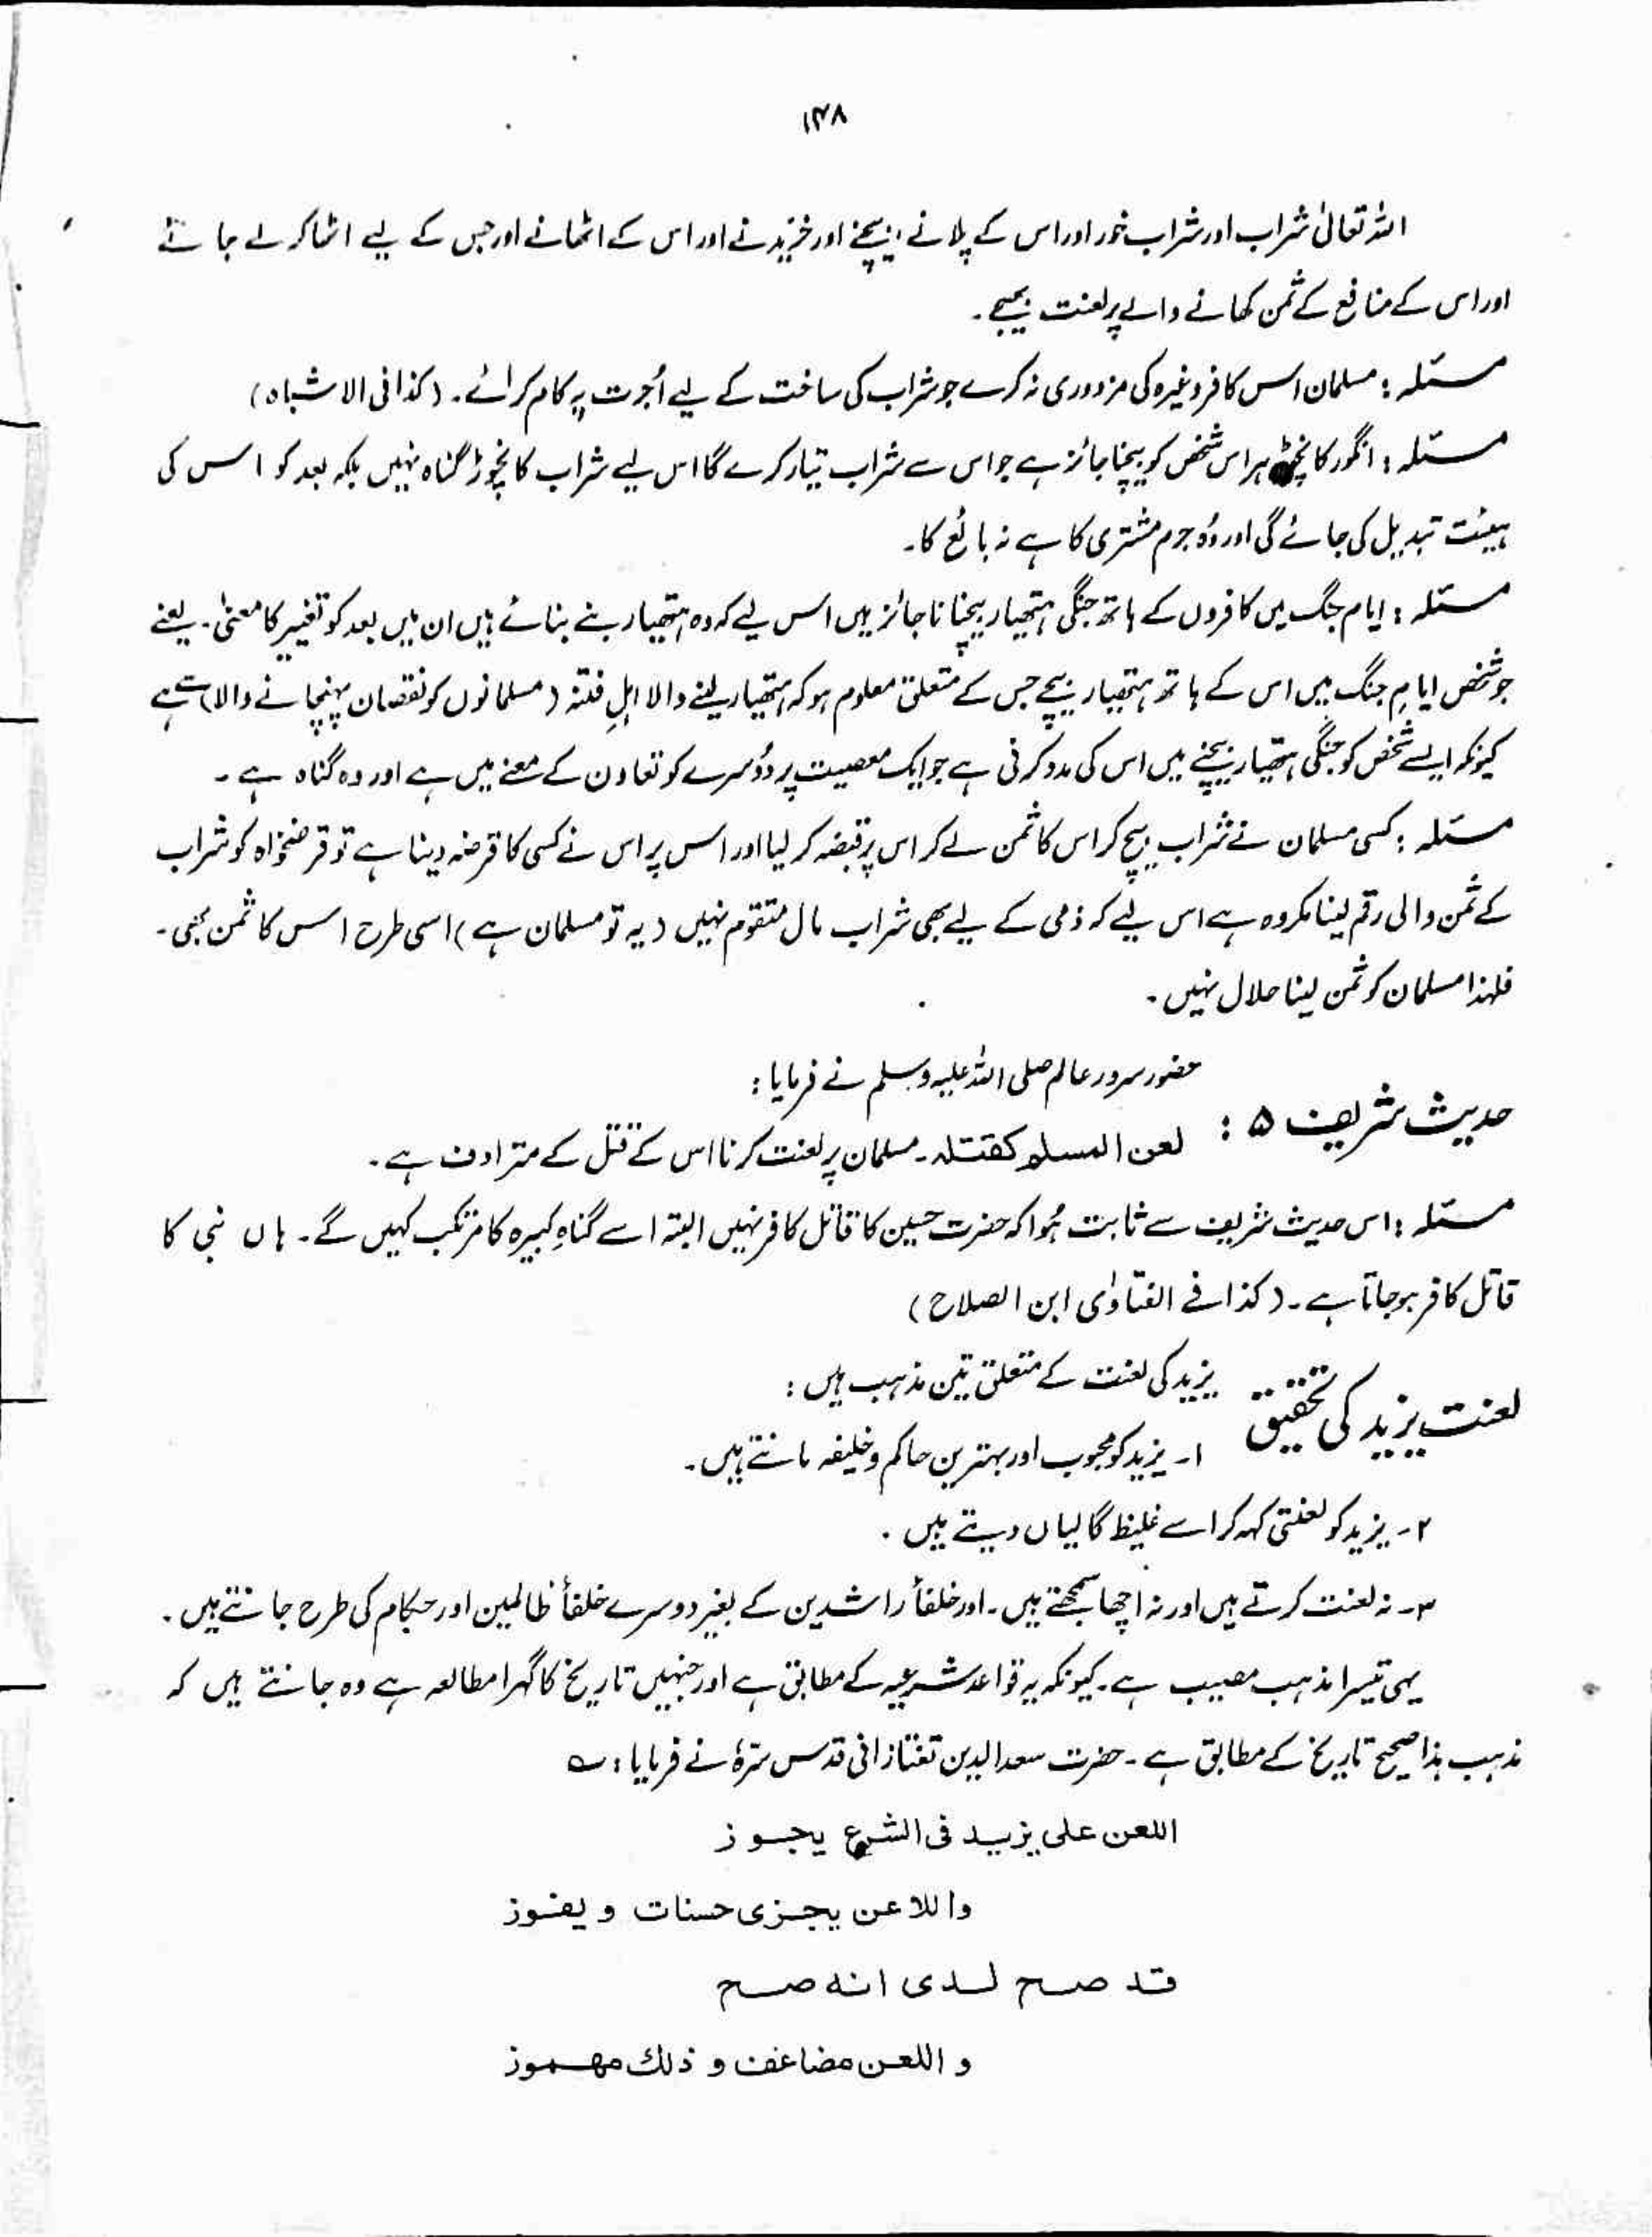 ۱۴۸
اللہ تعالیٰ شراب اور شراب خور اور اس کے پلانے، بیچنے اور خریدنے اور اس کے اٹھانے اور جس کے لیے اٹھا کر لے جائے
اور اس کے منافع کے ثمن کھانے والے پر لعنت بھیجے۔
مسئلہ : مسلمان اس کافر وغیرہ کی مزدوری نہ کرے جو شراب کی ساخت کے لیے اُجرت پہ کام کرائے۔ (کذا فی الاشباہ)
مسئلہ : انگور کا نچوڑ ہر اس شخص کو بیچنا جائز ہے جو اس سے شراب تیار کرے گا اس لیے شراب کا نچوڑ گناہ نہیں بلکہ بعد کو اس کی
ہیئت تبدیل کی جائے گی اور وُہ جرم مشتری کا ہے نہ بائع کا۔
مسئلہ : ایام جنگ میں کافروں کے ہاتھ جنگی ہتھیار بیچنا ناجائز ہیں اس لیے کہ وہ ہتھیار بنے بنائے ہیں ان میں بعد کو تغییر کا معنیٰ۔ یعنے
جو شخص ایامِ جنگ میں اس کے ہاتھ ہتھیار بیچے جس کے متعلق معلوم ہو کہ ہتھیار لینے والا اہلِ فتنہ (مسلمانوں کو نقصان پہنچانے والا) سے ہے
کیونکہ ایسے شخص کو جنگی ہتھیار بیچنے میں اس کی مدد کرنی ہے جو ایک معصیت پر دُوسرے کو تعاون کے معنے میں ہے اور وہ گناہ ہے۔
مسئلہ : کسی مسلمان نے شراب بیچ کر اس کا ثمن لے کر اس پر قبضہ کر لیا اور اس پر اس نے کسی کا قرضہ دینا ہے تو قرضخواہ کو شراب
کے ثمن والی رقم لینا مکروہ ہے اس لیے کہ ذمی کے لیے بھی شراب مال متقوم نہیں (یہ تو مسلمان ہے) اسی طرح اس کا ثمن بھی۔
فلہذا مسلمان کو ثمن لینا حلال نہیں۔
حضور سرور عالم صلی اللہ علیہ وسلم نے فرمایا :
حدیث شریف ۵ :
لعن المسلم کقتلہ۔ مسلمان پر لعنت کرنا اس کے قتل کے مترادف ہے۔
مسئلہ : اس حدیث شریف سے ثابت ہُوا کہ حضرت حسین کا قاتل کافر نہیں البتہ اسے گناہِ کبیرہ کا مرتکب کہیں گے۔ ہاں نبی کا
قاتل کافر ہو جاتا ہے۔ (کذا فے الفتاوٰی ابن الصلاح)
یزید کی لعنت کے متعلق تین مذہب ہیں :
لعنت یزید کی تحقیق
۱۔ یزید کو محبوب اور بہترین حاکم و خلیفہ مانتے ہیں۔
۲۔ یزید کو لعنتی کہہ کر اسے غلیظ گالیاں دیتے ہیں۔
۳۔ نہ لعنت کرتے ہیں اور نہ اچھا سمجھتے ہیں۔ اور خلفاء راشدین کے بغیر دوسرے خلفاء ظالمین اور حکام کی طرح جانتے ہیں۔
یہی تیسرا مذہب مصیب ہے۔ کیونکہ یہ قواعد شرعیہ کے مطابق ہے اور جنہیں تاریخ کا گہرا مطالعہ ہے وہ جانتے ہیں کہ
مذہب ہذا صحیح تاریخ کے مطابق ہے۔ حضرت سعد الدین تفتازانی قدس سرّہٗ نے فرمایا : ؎
اللعن علی یزید فی الشرع یجوز
واللاعن یجزی حسنات و یفوز
قد صح لدی انہ صح
و اللعن مضاعف و ذلك مهموز